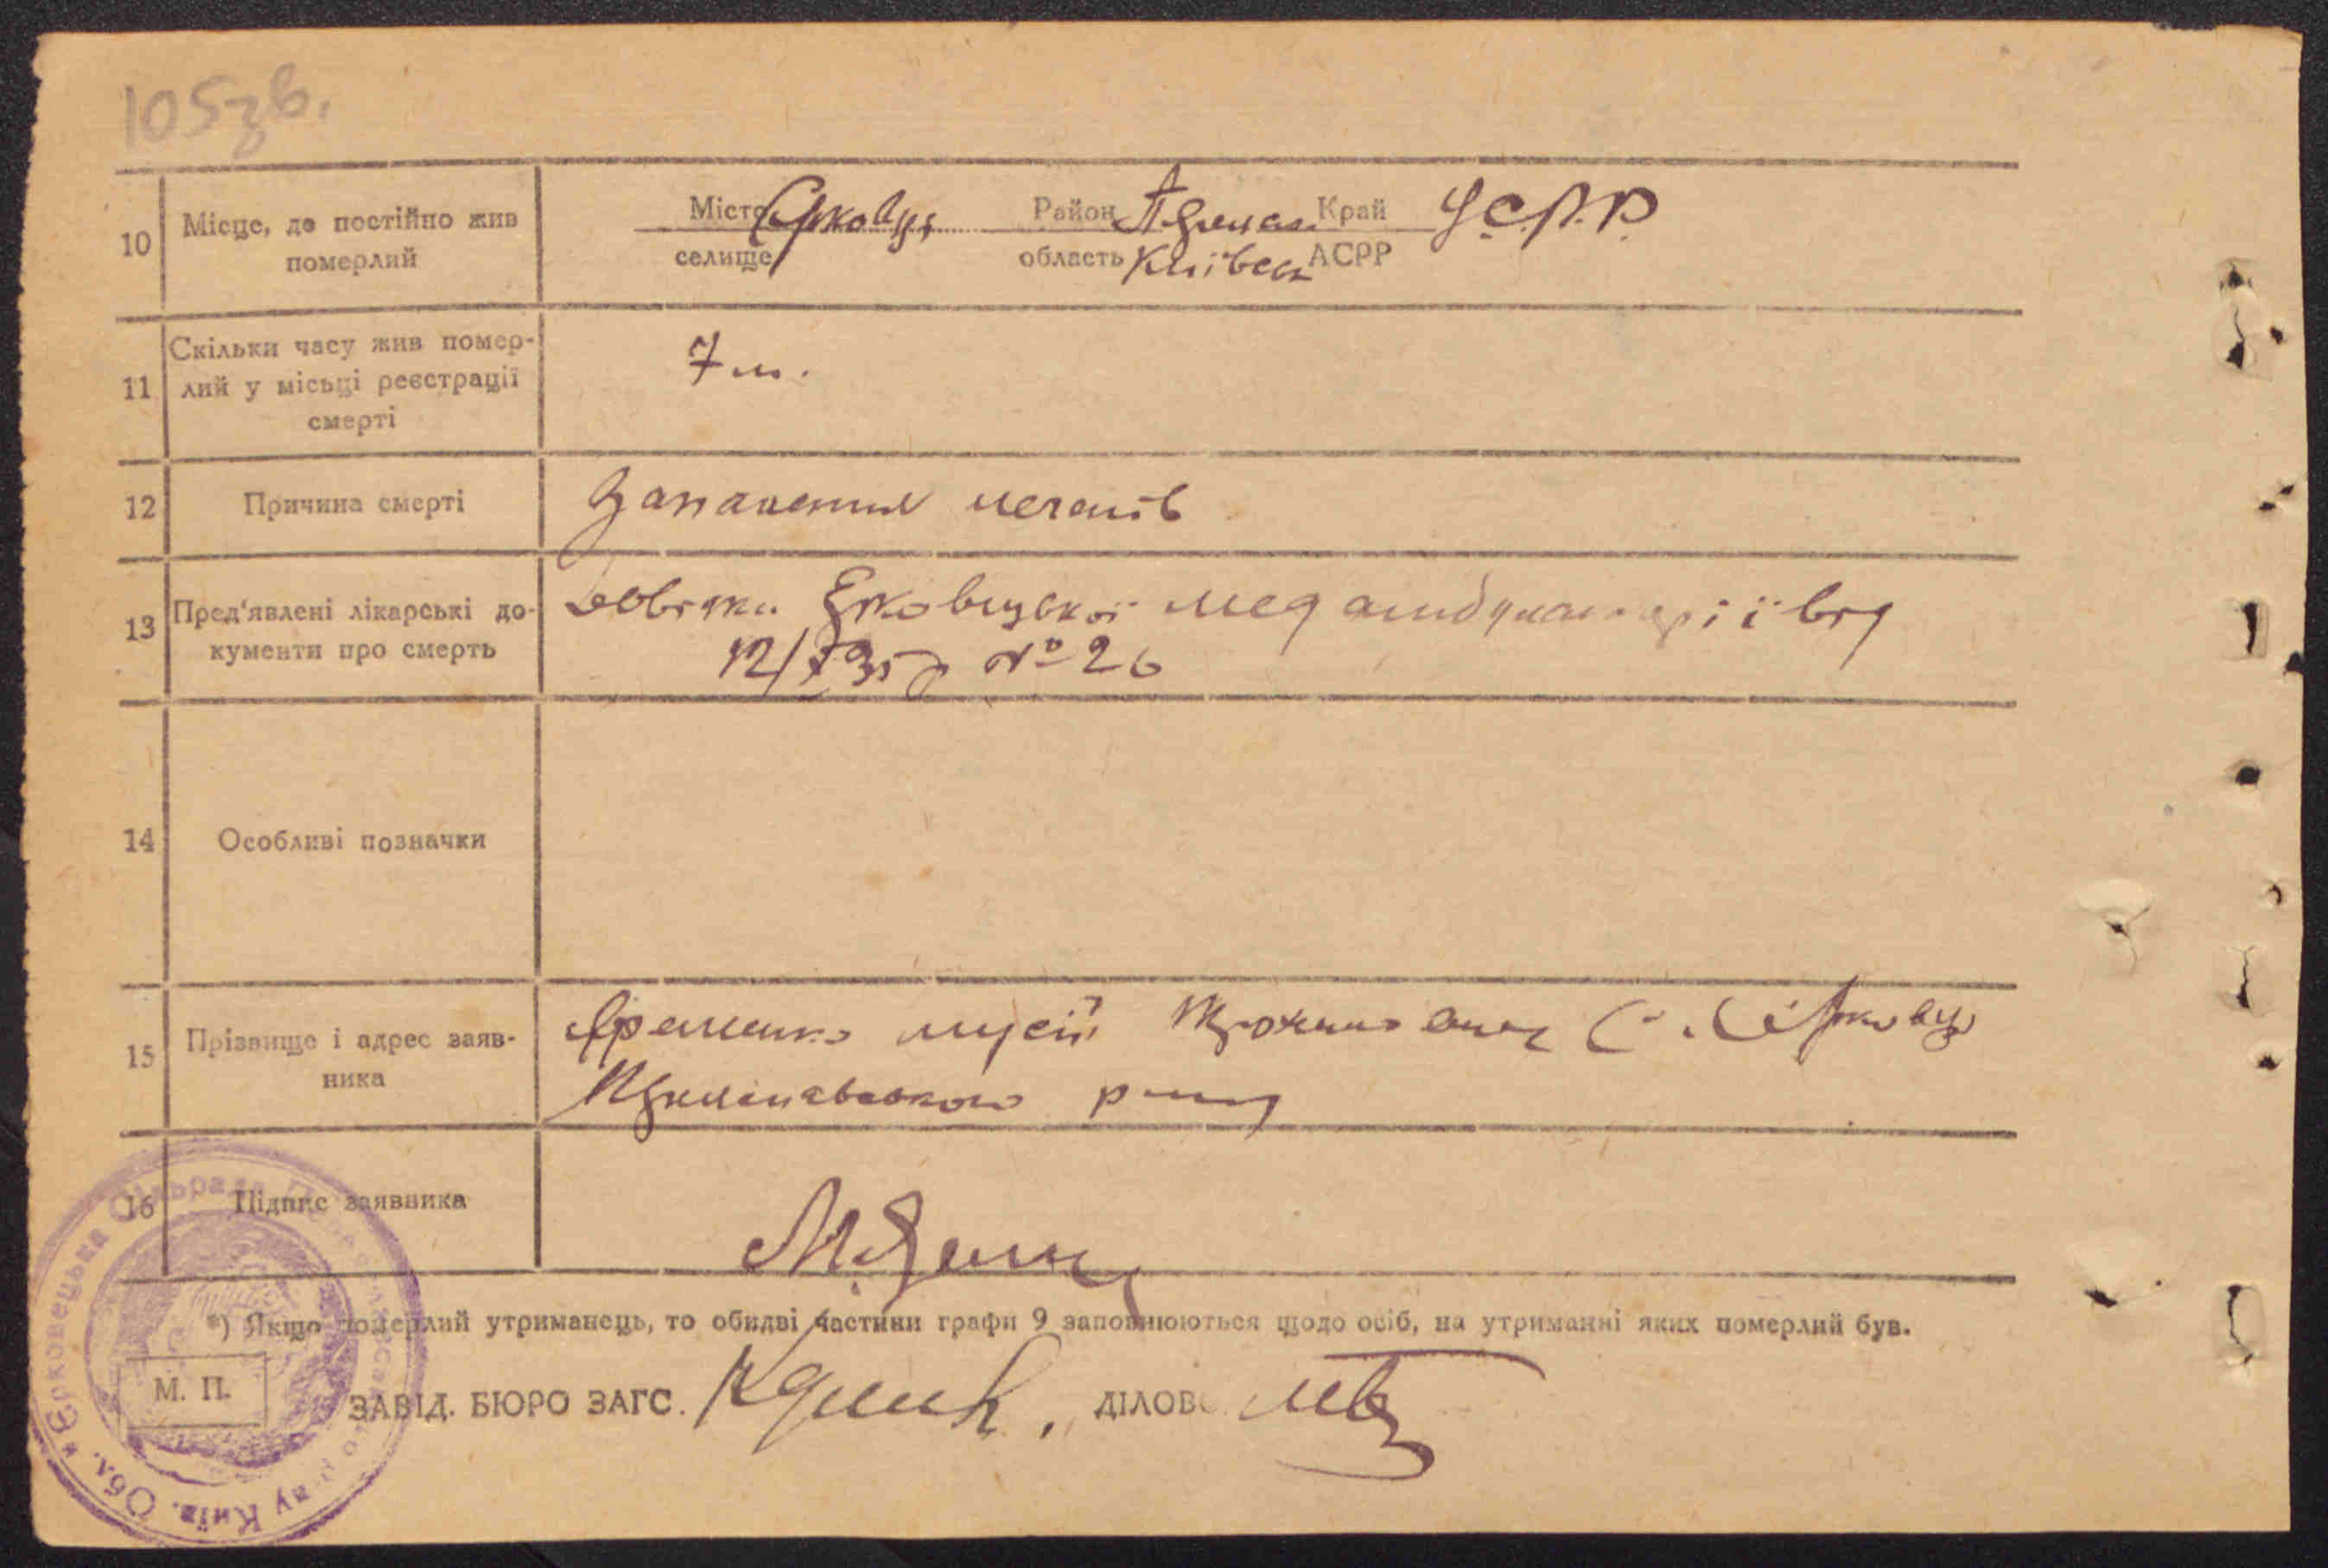 105зв.
10 Місце, де постійно жив померлий
Місто Єрковці Район Край У.С.Р.Р.
селище область Київськ АСРР
11 Скільки часу жив помер-
лий у місьці реєстрації
смерті
7 м.
12 Причина смерті
Запалення легенів
13 Пред'явлені лікарські до-
кументи про смерть
Довідка Єрковецької мед амбулаторії від
12/ 35 р № 26
14 Особливі позначки
15 Прізвище і адрес заяв-
ника
Яременко Мусій с. Єрковці
району
16 Підпис заявника
*) Якщо померлий утриманець, то обидві частини графи 9 заповнюються щодо осіб, на утриманні яких померлий був.
М. П.
ЗАВІД. БЮРО ЗАГС. ДІЛОВ
Єрковецька Сільрада у Київ. Обл.